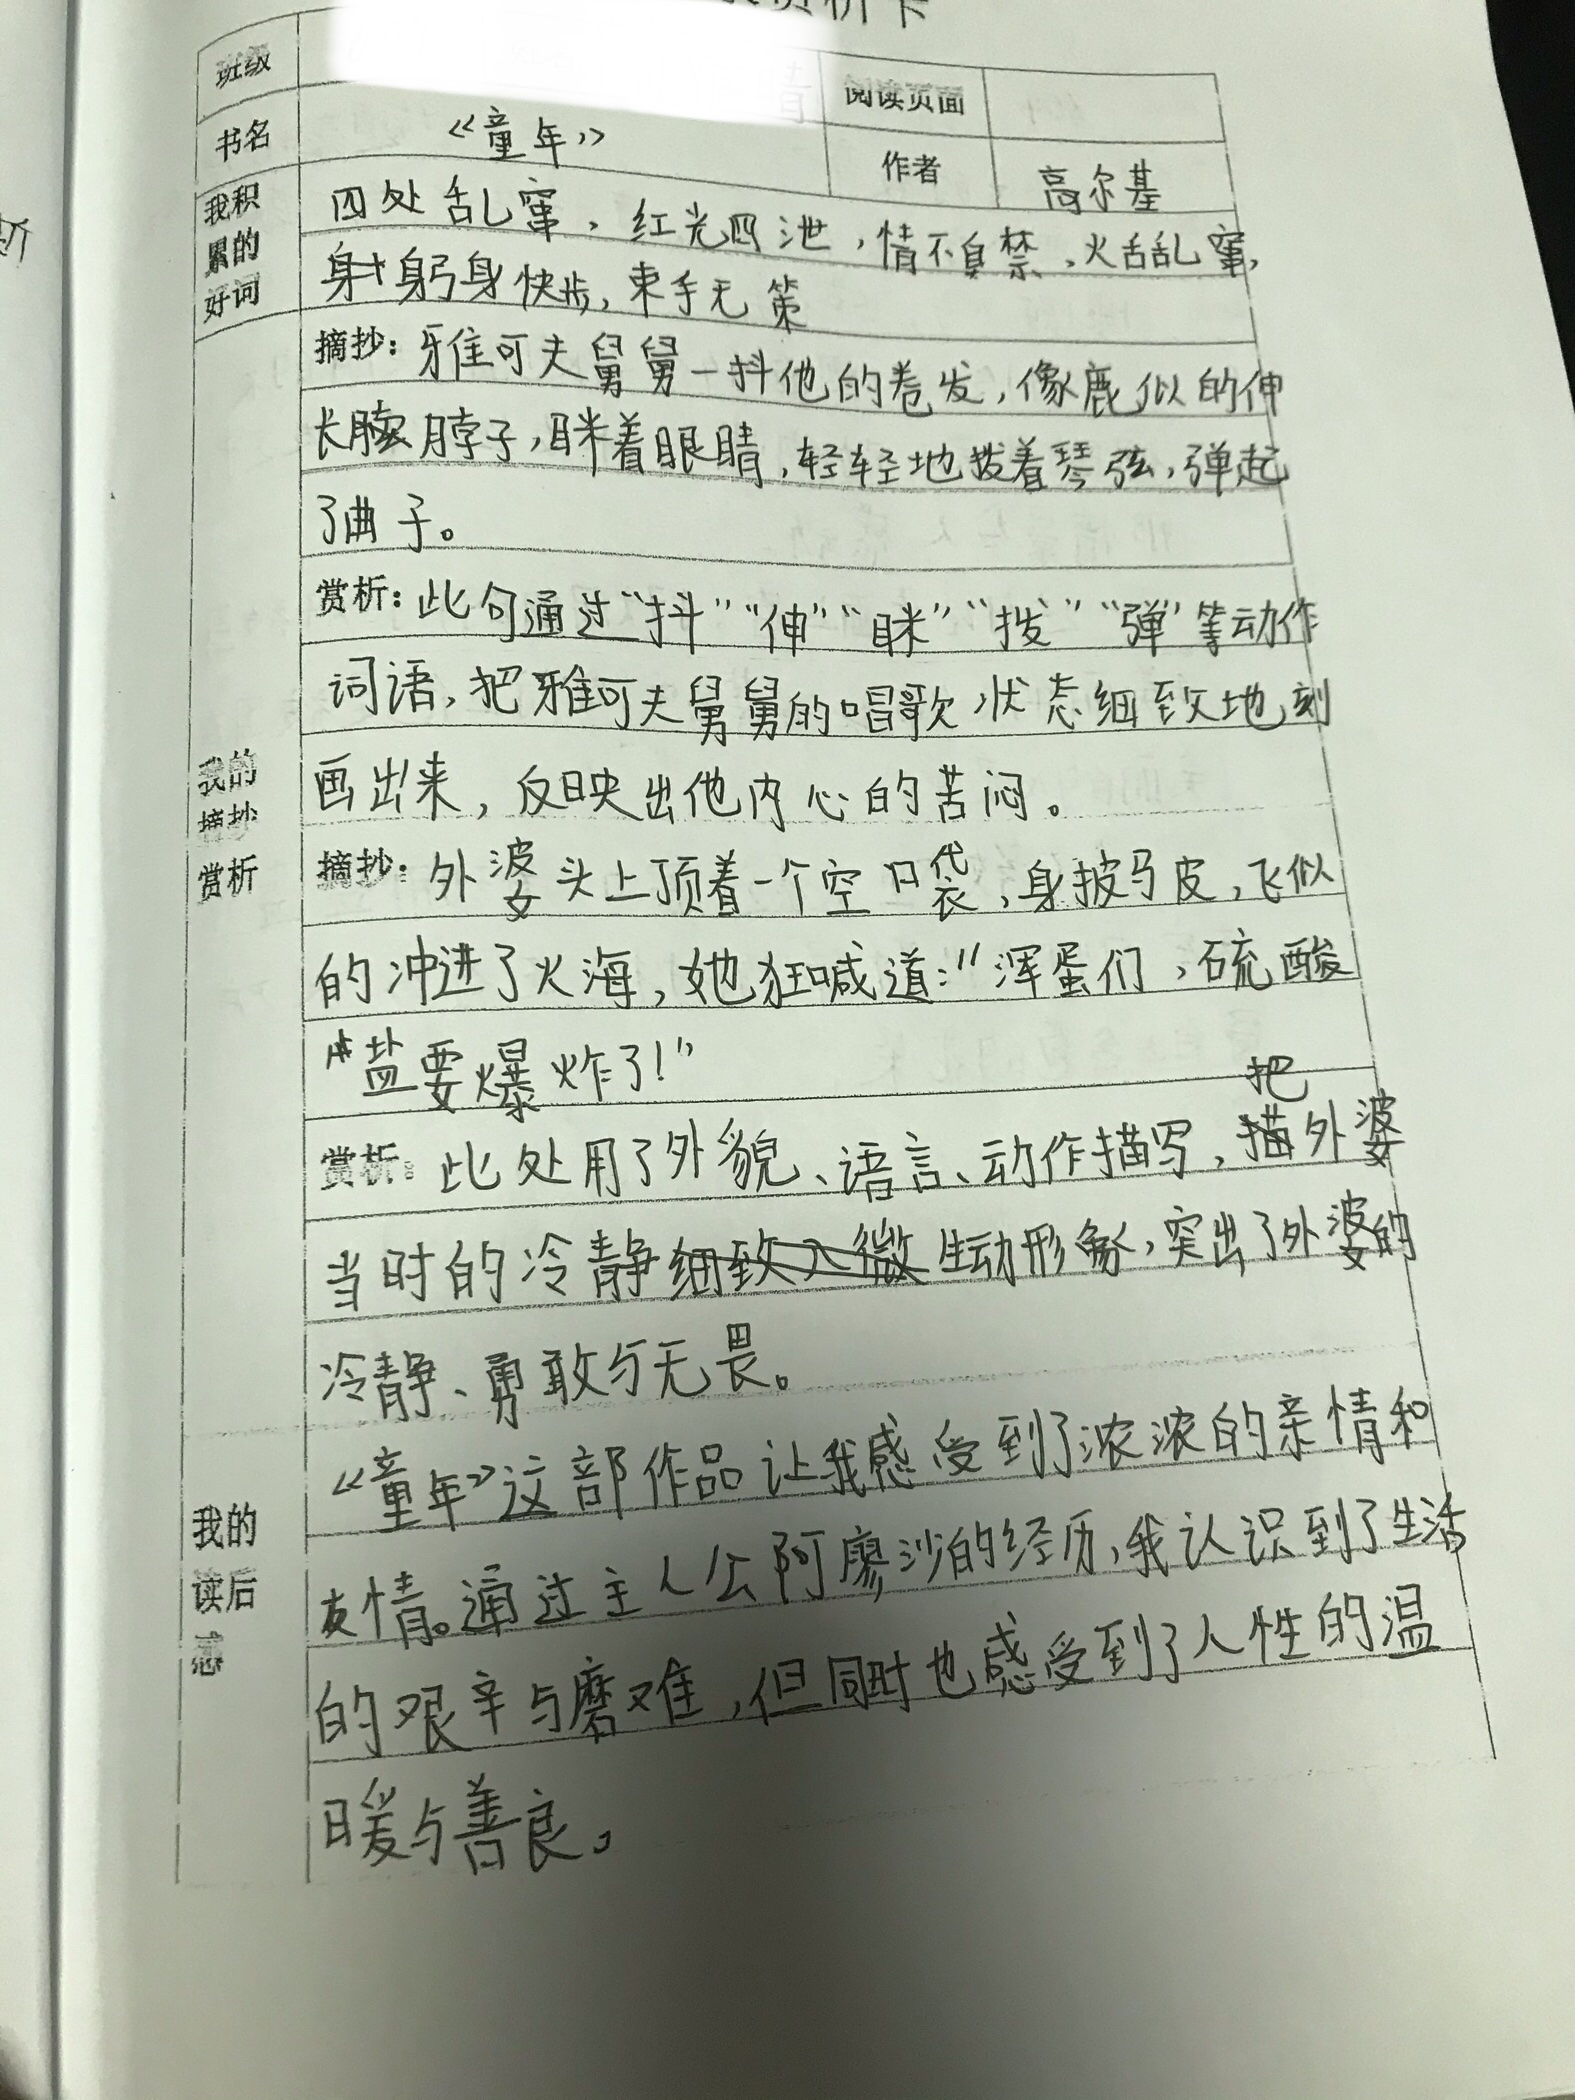 赏析卡
班级
阅读页面
书名 《童年》 作者 高尔基
我积累的好词
四处乱窜，红光四泄，情不自禁、火舌乱窜，
躬身快步，束手无策
我的摘抄赏析
摘抄：雅可夫舅舅一抖他的卷发，像鹿似的伸
长脖子，眯着眼睛，轻轻地拨着琴弦，弹起
了曲子。
赏析：此句通过“抖”“伸”“眯”“拨”“弹”等动作
词语，把雅可夫舅舅的唱歌状态细致地刻
画出来，反映出他内心的苦闷。
摘抄：外婆头上顶着一个空口袋，身披马皮，飞似
的冲进了火海，她狂喊道：“浑蛋们，硫酸
盐要爆炸了！”
赏析：此处用了外貌、语言、动作描写，把外婆
当时的冷静细致入微生动形象，突出了外婆的
冷静、勇敢与无畏。
我的读后感
《童年》这部作品让我感受到了浓浓的亲情和
友情。通过主人公阿廖沙的经历，我认识到了生活
的艰辛与磨难，但同时也感受到了人性的温
暖与善良。